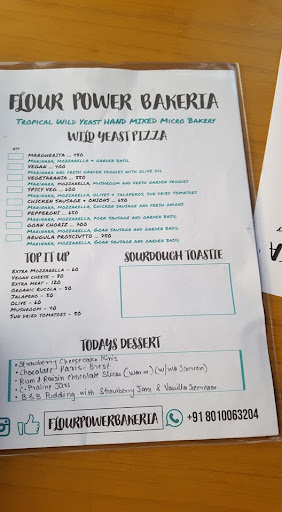 FLOUR POWER BAKERIA
TROPICAL WILD YEAST HAND MIXED MICRO BAKERY
WILD YEAST PIZZA
QTY
MARGHERITA ... 450
MARINARA, MOZZARELLA & GARDEN BASIL
VEGAN ... 400
MARINARA AND FRESH GARDEN VEGGIES WITH OLIVE OIL
VEGETARIANA ... 550
MARINARA, MOZZARELLA, MUSHROOM AND FRESH GARDEN VEGGIES
SPICY VEG ... 600
MARINARA, MOZZARELLA, OLIVES + JALAPENOS, SUN DRIED TOMATOES
CHICKEN SAUSAGE + ONIONS ... 650
MARINARA, MOZZARELLA, CHICKEN SAUSAGE AND FRESH ONIONS
PEPPERONI ... 650
MARINARA, MOZZARELLA, PORK SAUSAGE AND GARDEN BASIL
GOAN CHORIZ ... 700
MARINARA, MOZZARELLA, GOAN SAUSAGE AND GARDEN BASIL
ARUGULA PROSCIUTTO ... 750
MARINARA, MOZZARELLA, GOAN SAUSAGE AND GARDEN BASIL
TOP IT UP
EXTRA MOZZARELLA - 60
VEGAN CHEESE - 80
EXTRA MEAT - 120
ORGANIC RUCOLA - 50
JALAPENO - 50
OLIVE - 60
MUSHROOM - 40
SUN DRIED TOMATOES - 50
SOURDOUGH TOASTIE
TODAYS DESSERT
• Strawberry Cheesecake Minis
• Chocolate Paris-Brest
• Rum & Raisin Chocolate Slices (Warm) (w/ Icecream)
• C-Praline Jars
• B&B Pudding with Strawberry Jam & Vanilla Icecream
FLOURPOWERBAKERIA
+91 8010063204